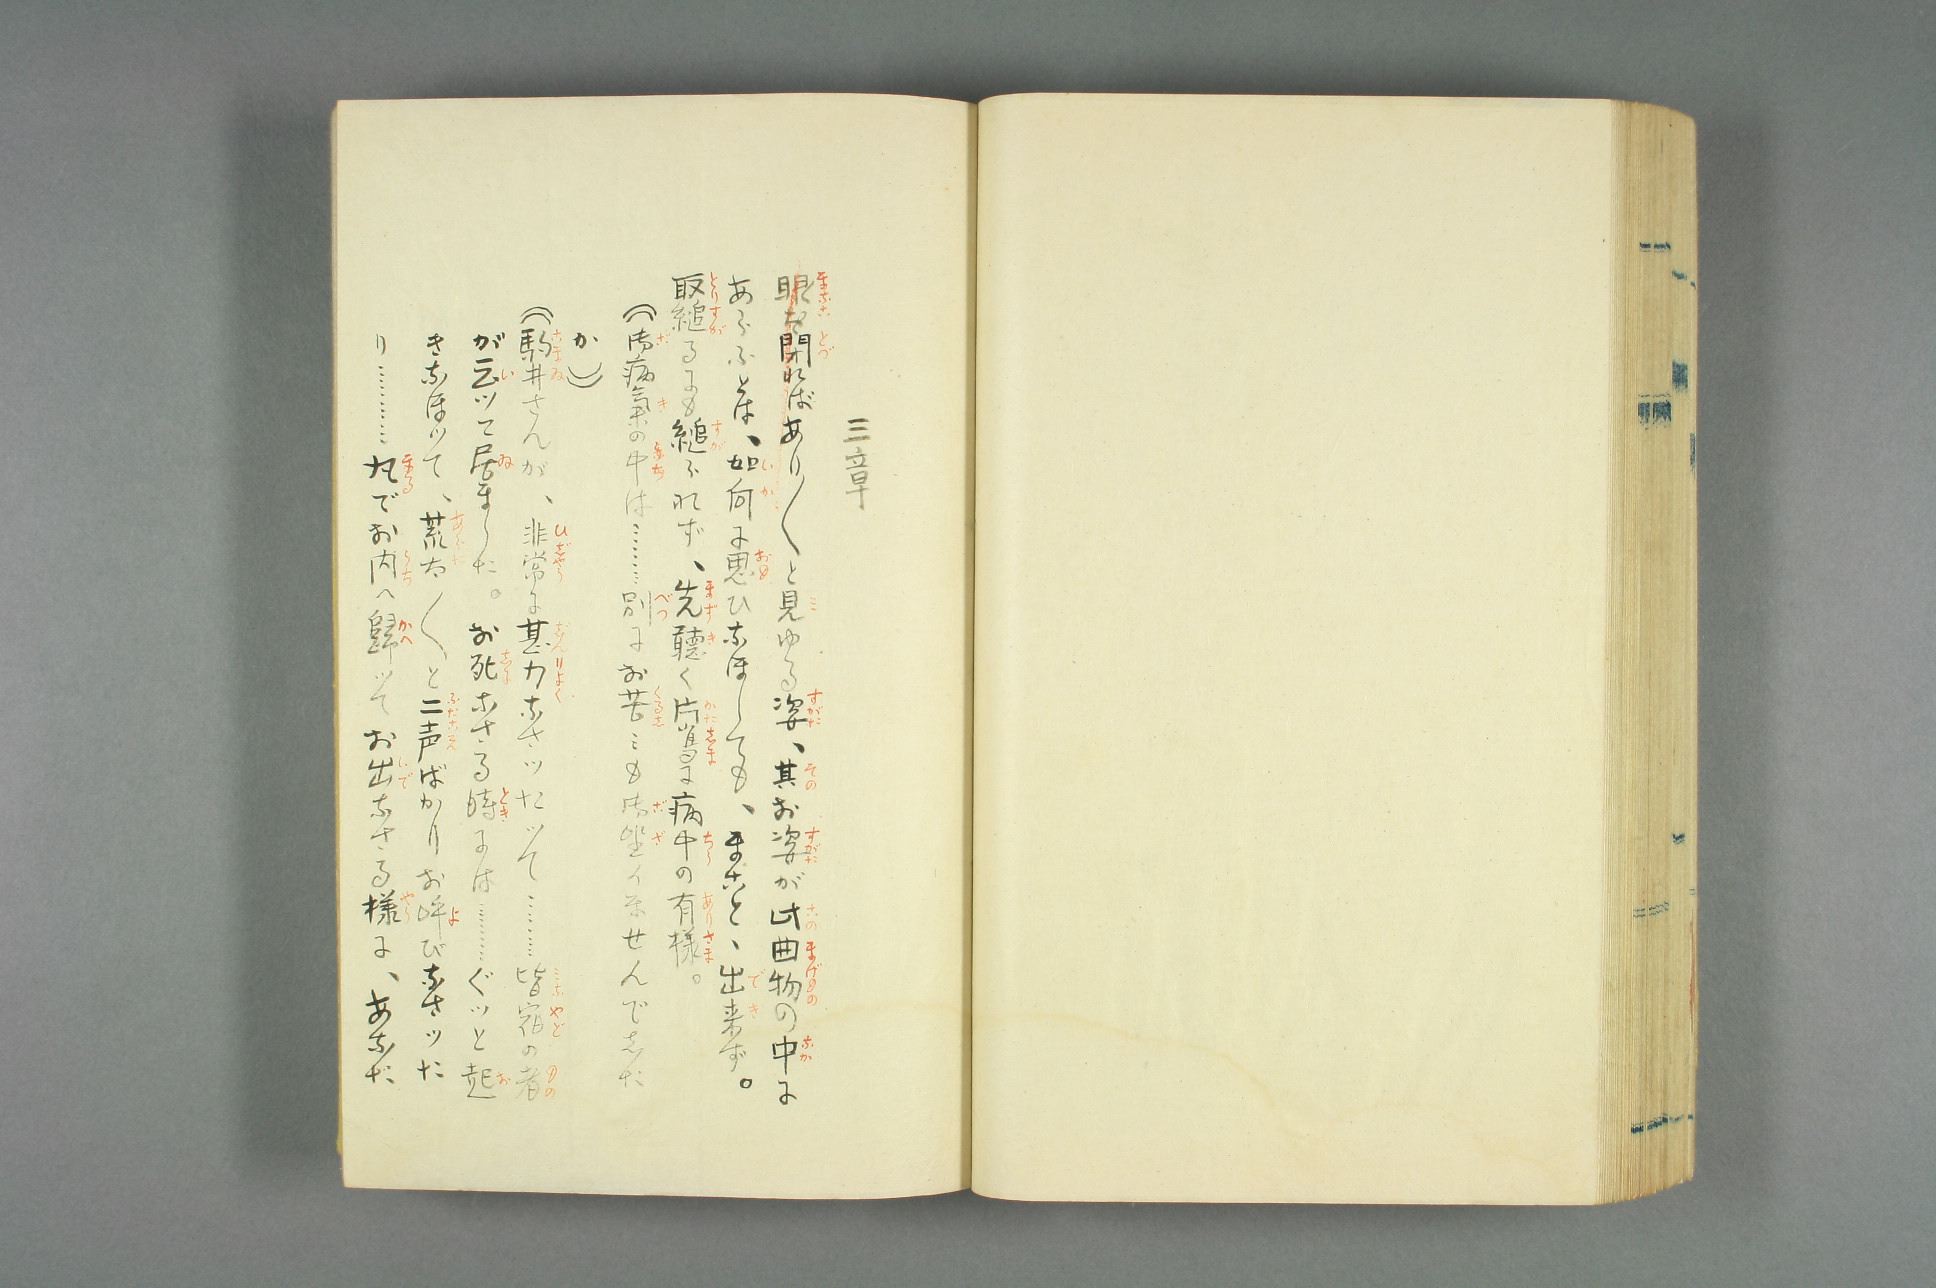 三章
眼を閉ればあり〱と見ゆる姿、其お姿が此曲物の中に
あらふとは、如何に思ひなほしても、まこと、出来ず。
取縋るにも縋られず、先聴く片嶌に病中の有様。
（御病氣の中は………別にお苦しみも御坐イませんでした
か）
（駒井さんが、非常に甚力なさツたツて………皆宿の者
が云ツて居ました。お死なさる時には………ぐツと起
きなほツて、荒太〱と二声ばかりお呼びなさツた
り………丸でお内へ歸ツてお出なさる様に、あなた